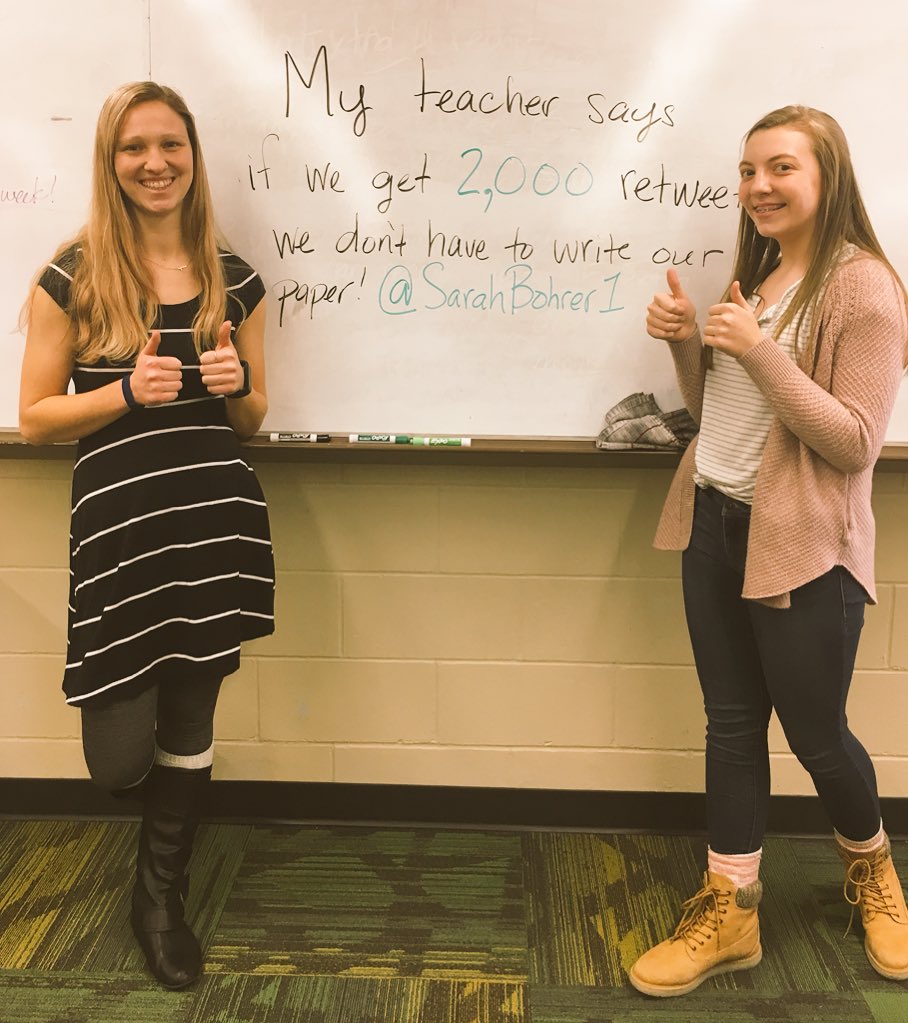 My teacher says
if we get 2,000 retwee
we don't have to write our
paper! @SarahBohrer1
week!
EXPO